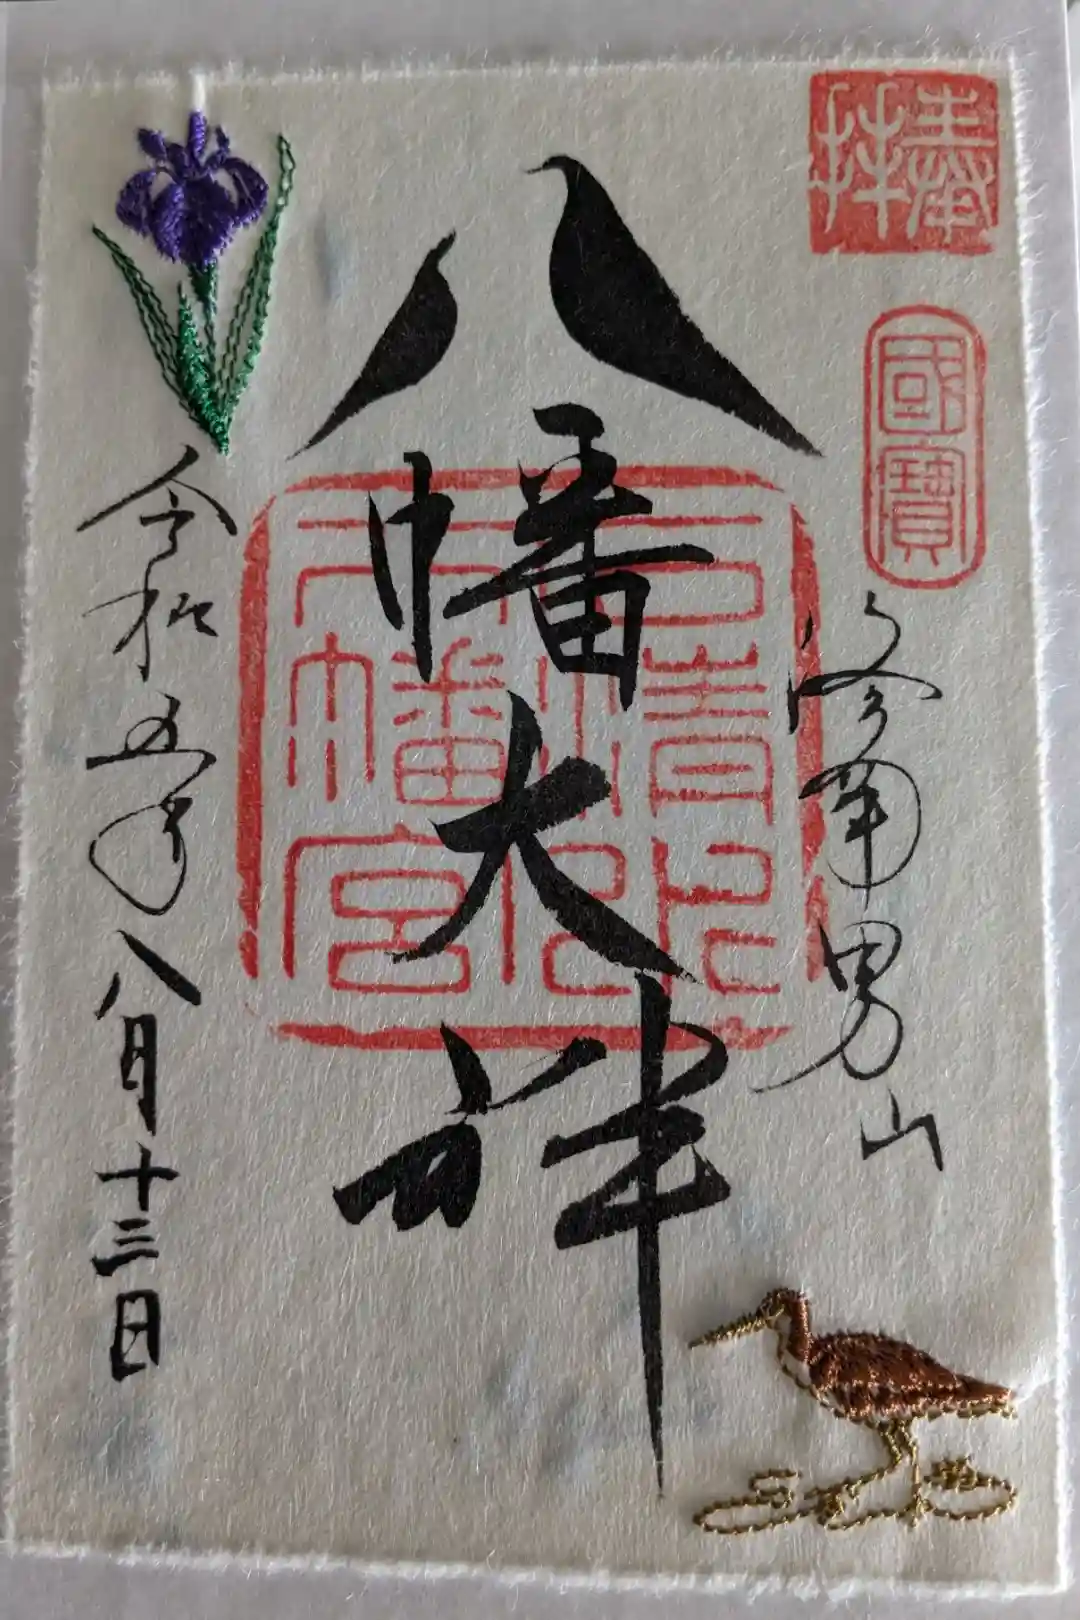 捧拝
國寶
洛南男山
八幡大神
石清水八幡宮
令和五年八月十三日